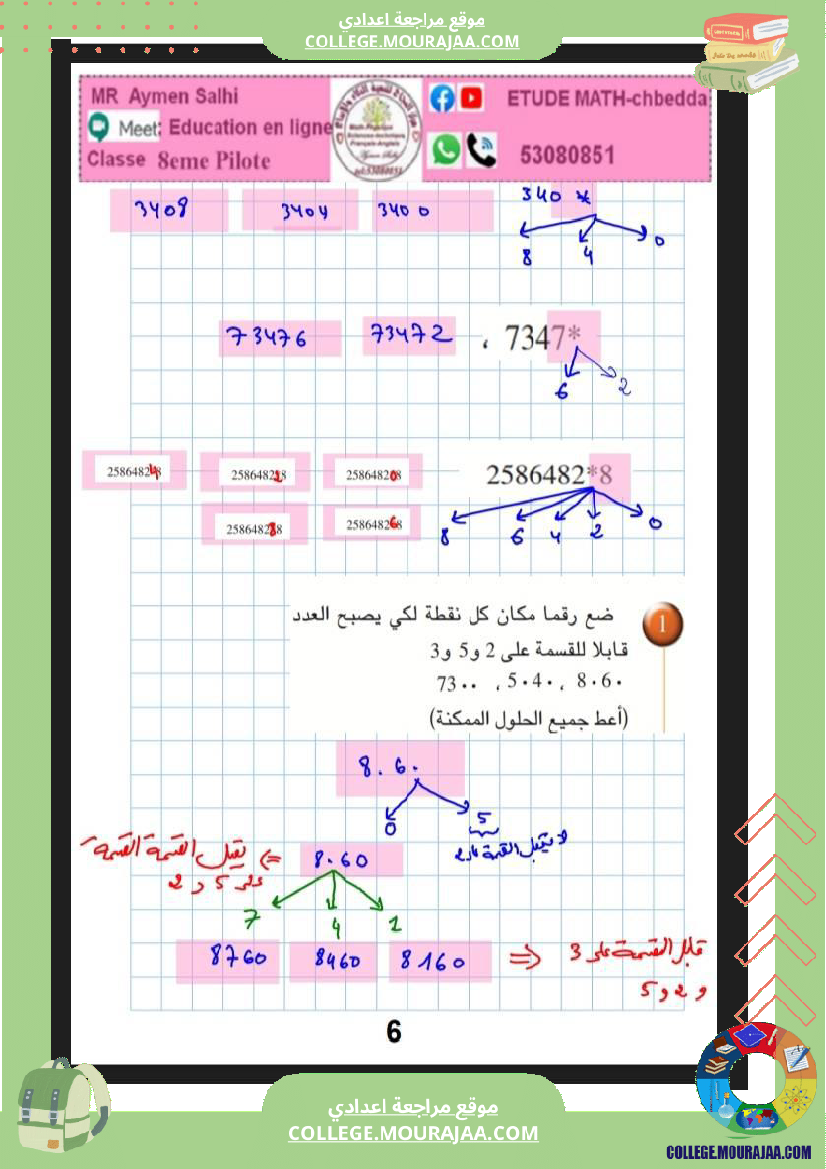 موقع مراجعة اعدادي
COLLEGE.MOURAJAA.COM
MR Aymen Salhi
Meet: Education en ligne
Classe 8eme Pilote
ETUDE MATH-chbedda
53080851
3408 3404 3400 340 *
8 4 0
73476 73472 ، 7347*
6 2
258648248 258648228 258648208 2586482*8
258648288 258648268
8 6 4 2 0
1 ضع رقما مكان كل نقطة لكي يصبح العدد
قابلا للقسمة على 2 و5 و3
8·6· ، 5·4· ، 73··
(أعط جميع الحلول الممكنة)
8 . 6 .
0 5
لا يقبل القسمة على 2
8.60 => يقبل القسمة القسمة
على 5 و 2
7 4 1
8760 8460 8160 => قابل القسمة على 3
و 2 و 5
6
موقع مراجعة اعدادي
COLLEGE.MOURAJAA.COM
COLLEGE.MOURAJAA.COM